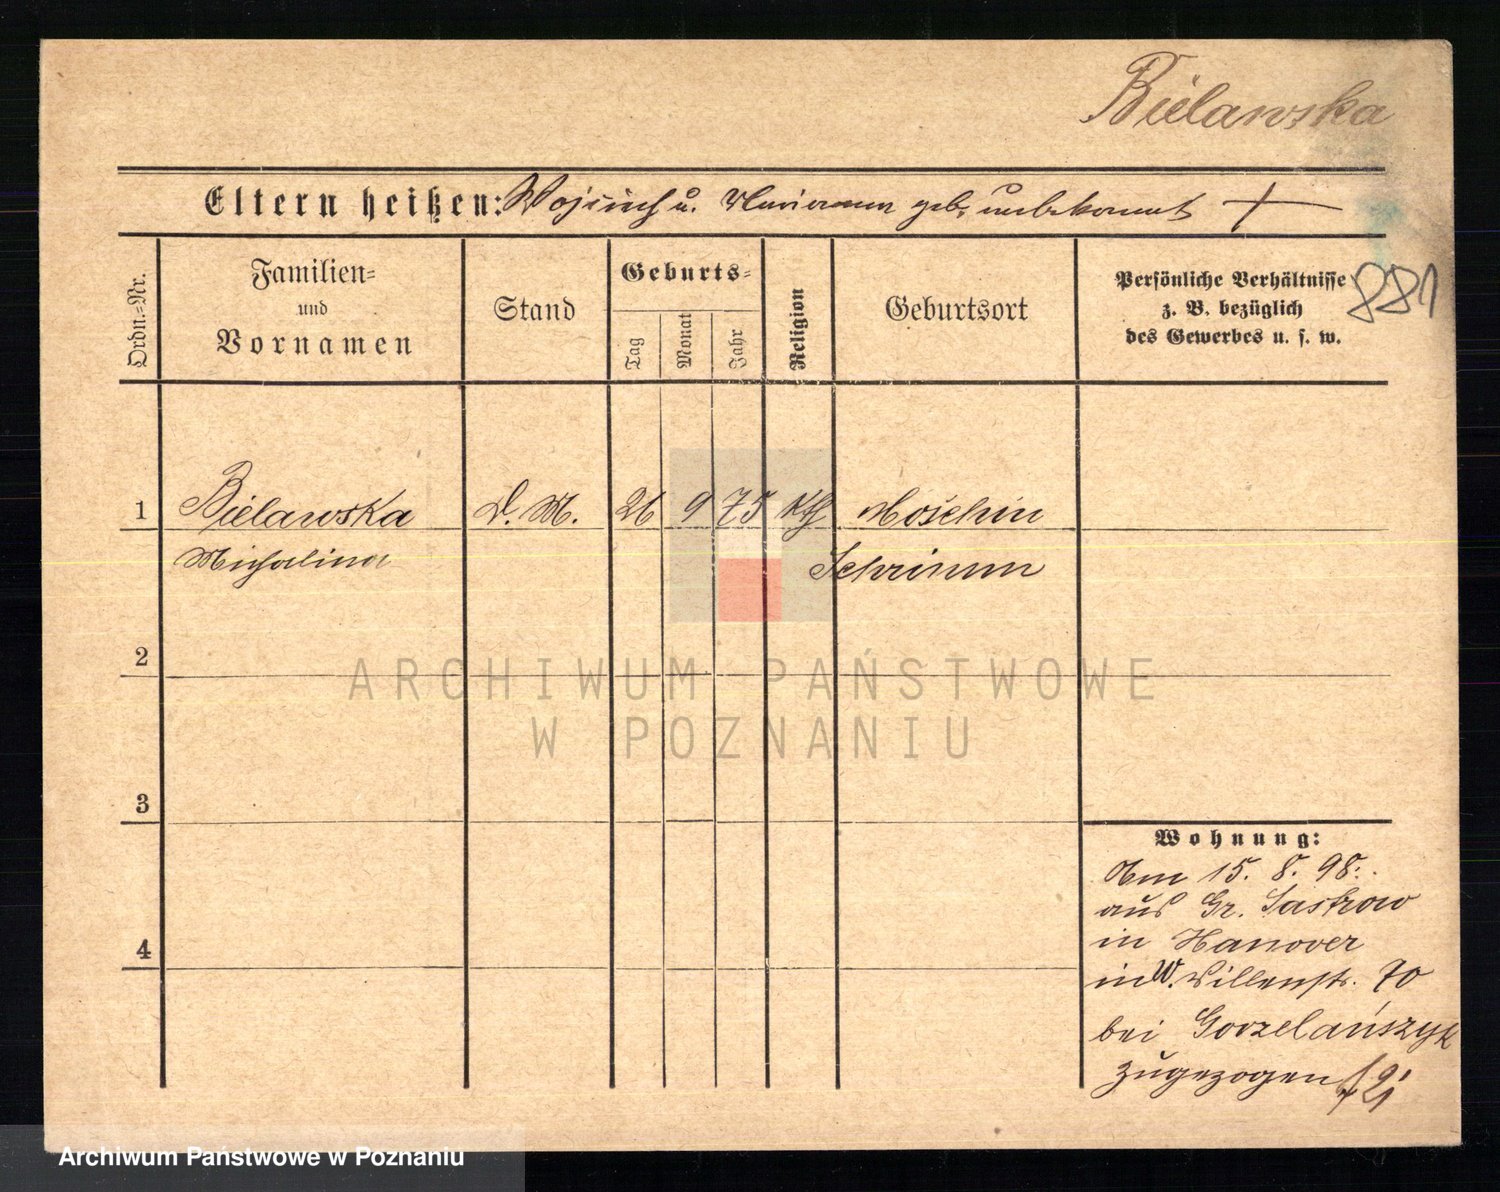 Bielawska
Eltern heißen: Wojciech u. Marianna geb. unbekannt +
Ordn.=Nr.
Familien= und Vornamen
Stand
Geburts=
Tag
Monat
Jahr
Religion
Geburtsort
Persönliche Verhältnisse
z. B. bezüglich
des Gewerbes u. s. w.
881
1 Bielawska D. M. 26 9 75 Kth Moschin
Michalina Schrimm
2
ARCHIWUM PAŃSTWOWE
W POZNANIU
3
Wohnung:
Am 15. 8. 98.
aus Gr.
in Hanover
in W. Villenstr. 70
4
bei Gorzelańszyk
zugezogen
Archiwum Państwowe w Poznaniu